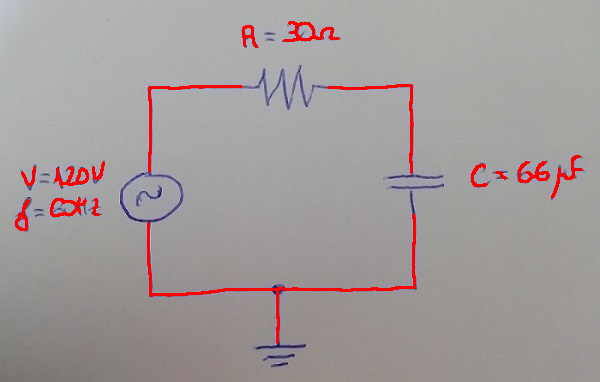 R = 30Ω
V = 120V
f = 60Hz
C = 66µF